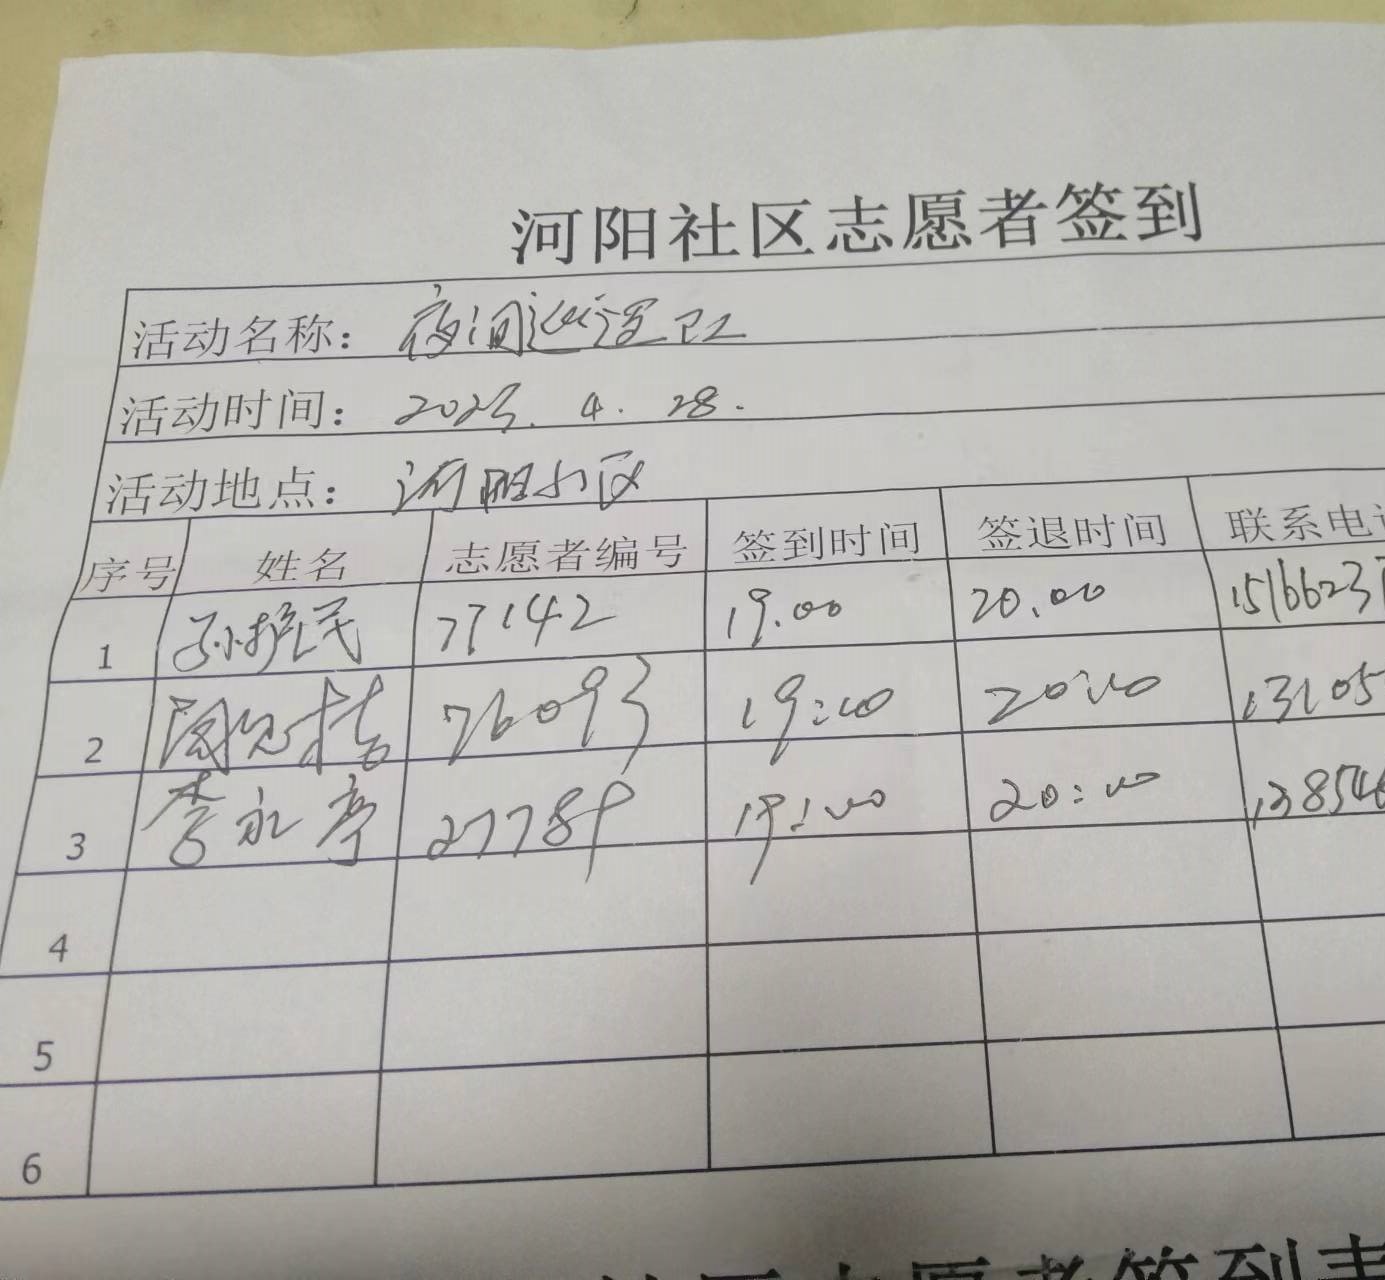 河阳社区志愿者签到
活动名称：夜间巡逻
活动时间：2023.4.28.
活动地点：河阳小区
序号 姓名 志愿者编号 签到时间 签退时间 联系电
1 孙护民 77142 19.00 20.00 1516623
2 76093 19:00 20:00 13105
3 李永亭 27789 19:00 20:00 13854
4
5
6
社区志愿者签到表